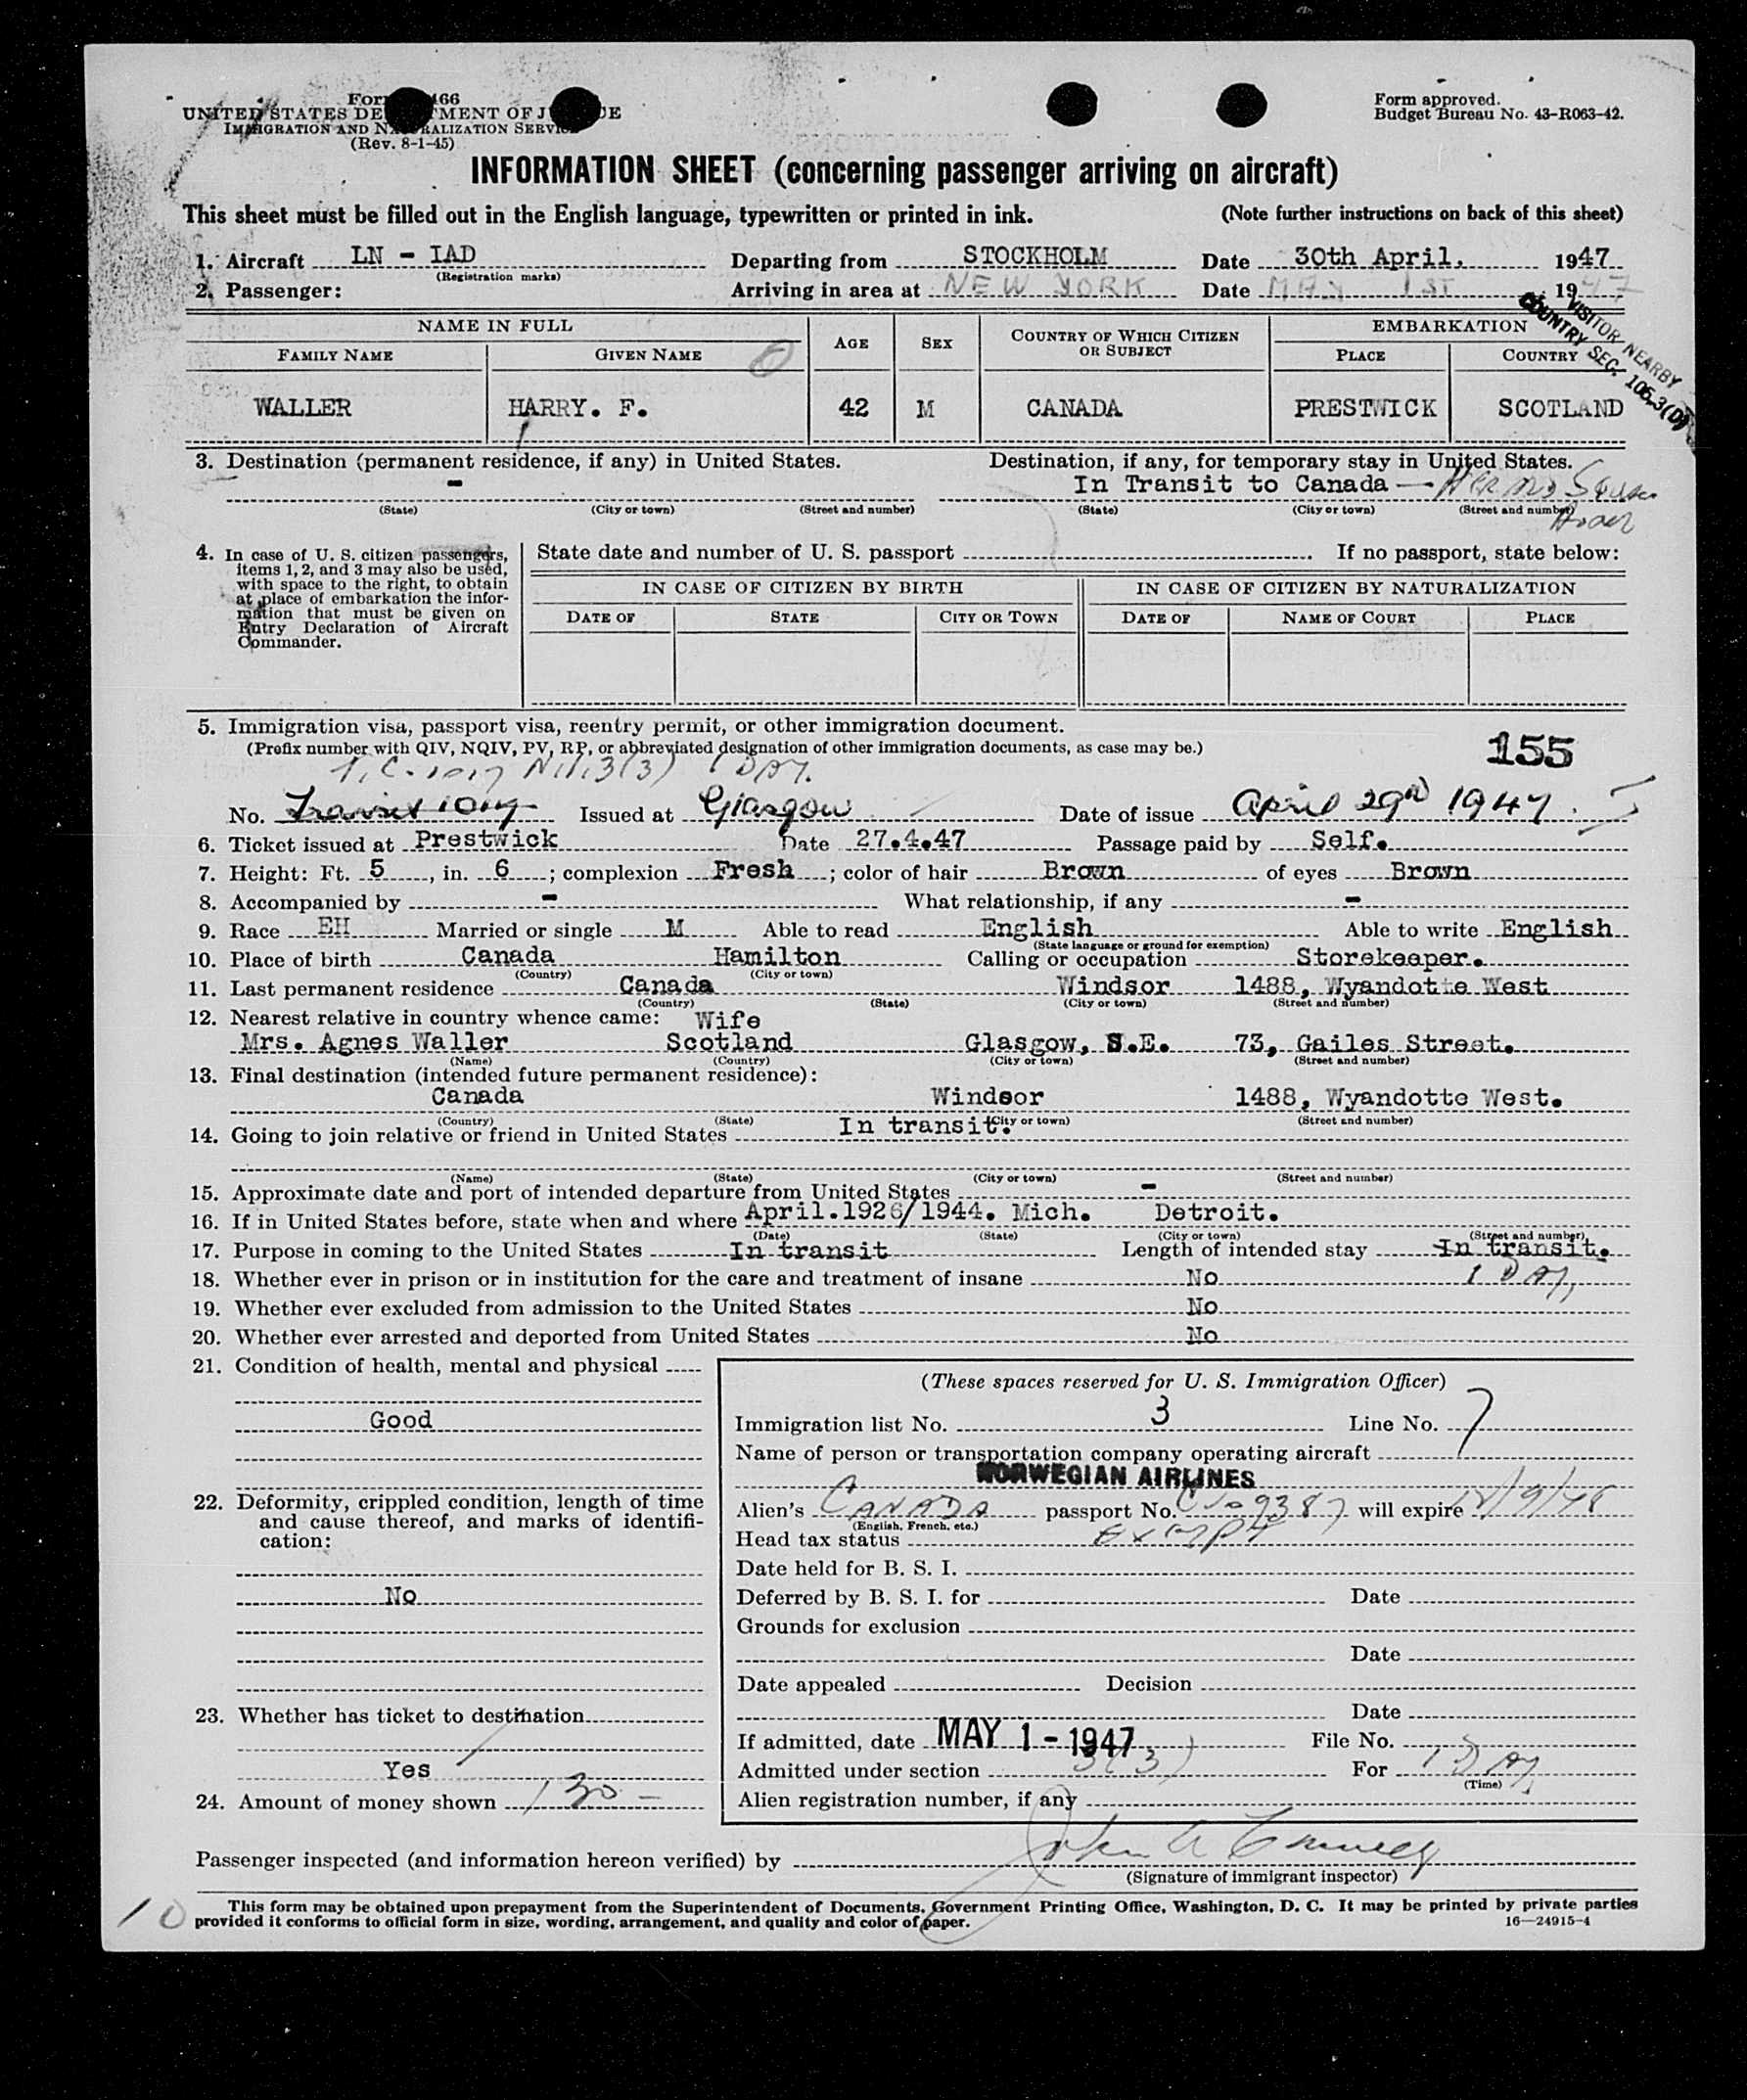 Form 466
UNITED STATES DEPARTMENT OF JUSTICE
IMMIGRATION AND NATURALIZATION SERVICE
(Rev. 8-1-45)
Form approved.
Budget Bureau No. 43-R063-42.
INFORMATION SHEET (concerning passenger arriving on aircraft)
This sheet must be filled out in the English language, typewritten or printed in ink. (Note further instructions on back of this sheet)
1. Aircraft LN - IAD Departing from STOCKHOLM Date 30th April, 1947
(Registration marks)
2. Passenger: Arriving in area at NEW YORK Date MAY 1ST 1947
VISITOR NEARBY
COUNTRY SEC. 106.3(D)
NAME IN FULL AGE SEX COUNTRY OF WHICH CITIZEN OR SUBJECT EMBARKATION
FAMILY NAME GIVEN NAME PLACE COUNTRY
WALLER HARRY. F. 42 M CANADA PRESTWICK SCOTLAND
3. Destination (permanent residence, if any) in United States. Destination, if any, for temporary stay in United States.
- In Transit to Canada —
(State) (City or town) (Street and number) (State) (City or town) (Street and number)
4. In case of U. S. citizen passengers, items 1, 2, and 3 may also be used, with space to the right, to obtain at place of embarkation the information that must be given on Entry Declaration of Aircraft Commander.
State date and number of U. S. passport If no passport, state below:
IN CASE OF CITIZEN BY BIRTH IN CASE OF CITIZEN BY NATURALIZATION
DATE OF STATE CITY OR TOWN DATE OF NAME OF COURT PLACE
5. Immigration visa, passport visa, reentry permit, or other immigration document.
(Prefix number with QIV, NQIV, PV, RP, or abbreviated designation of other immigration documents, as case may be.) 155
3(3) 1 DAY.
No. Transit Issued at Glasgow Date of issue April 29th 1947.
6. Ticket issued at Prestwick Date 27.4.47 Passage paid by Self.
7. Height: Ft. 5, in. 6; complexion Fresh; color of hair Brown of eyes Brown
8. Accompanied by - What relationship, if any -
9. Race EH Married or single M Able to read English Able to write English
(State language or ground for exemption)
10. Place of birth Canada Hamilton Calling or occupation Storekeeper.
(Country) (City or town)
11. Last permanent residence Canada Windsor 1488, Wyandotte West
(Country) (State) (City or town) (Street and number)
12. Nearest relative in country whence came: Wife
Mrs. Agnes Waller Scotland Glasgow, S.E. 73, Gailes Street.
(Name) (Country) (City or town) (Street and number)
13. Final destination (intended future permanent residence):
Canada Windsor 1488, Wyandotte West.
(Country) (State) (City or town) (Street and number)
14. Going to join relative or friend in United States In transit.
(Name) (State) (City or town) (Street and number)
15. Approximate date and port of intended departure from United States -
16. If in United States before, state when and where April.1926/1944. Mich. Detroit.
(Date) (State) (City or town) (Street and number)
17. Purpose in coming to the United States In transit Length of intended stay In transit.
18. Whether ever in prison or in institution for the care and treatment of insane No 1 DAY
19. Whether ever excluded from admission to the United States No
20. Whether ever arrested and deported from United States No
21. Condition of health, mental and physical
Good
22. Deformity, crippled condition, length of time and cause thereof, and marks of identification:
No
23. Whether has ticket to destination
Yes
24. Amount of money shown 130 -
(These spaces reserved for U. S. Immigration Officer)
Immigration list No. 3 Line No. 7
Name of person or transportation company operating aircraft
NORWEGIAN AIRLINES
Alien's CANADA passport No. will expire
(English, French, etc.)
Head tax status EXMPT
Date held for B. S. I.
Deferred by B. S. I. for Date
Grounds for exclusion
Date
Date appealed Decision
Date
If admitted, date MAY 1 - 1947 File No.
Admitted under section 3(3) For 1 DAY
(Time)
Alien registration number, if any
Passenger inspected (and information hereon verified) by
(Signature of immigrant inspector)
10
This form may be obtained upon prepayment from the Superintendent of Documents, Government Printing Office, Washington, D. C. It may be printed by private parties
provided it conforms to official form in size, wording, arrangement, and quality and color of paper. 16—24915-4